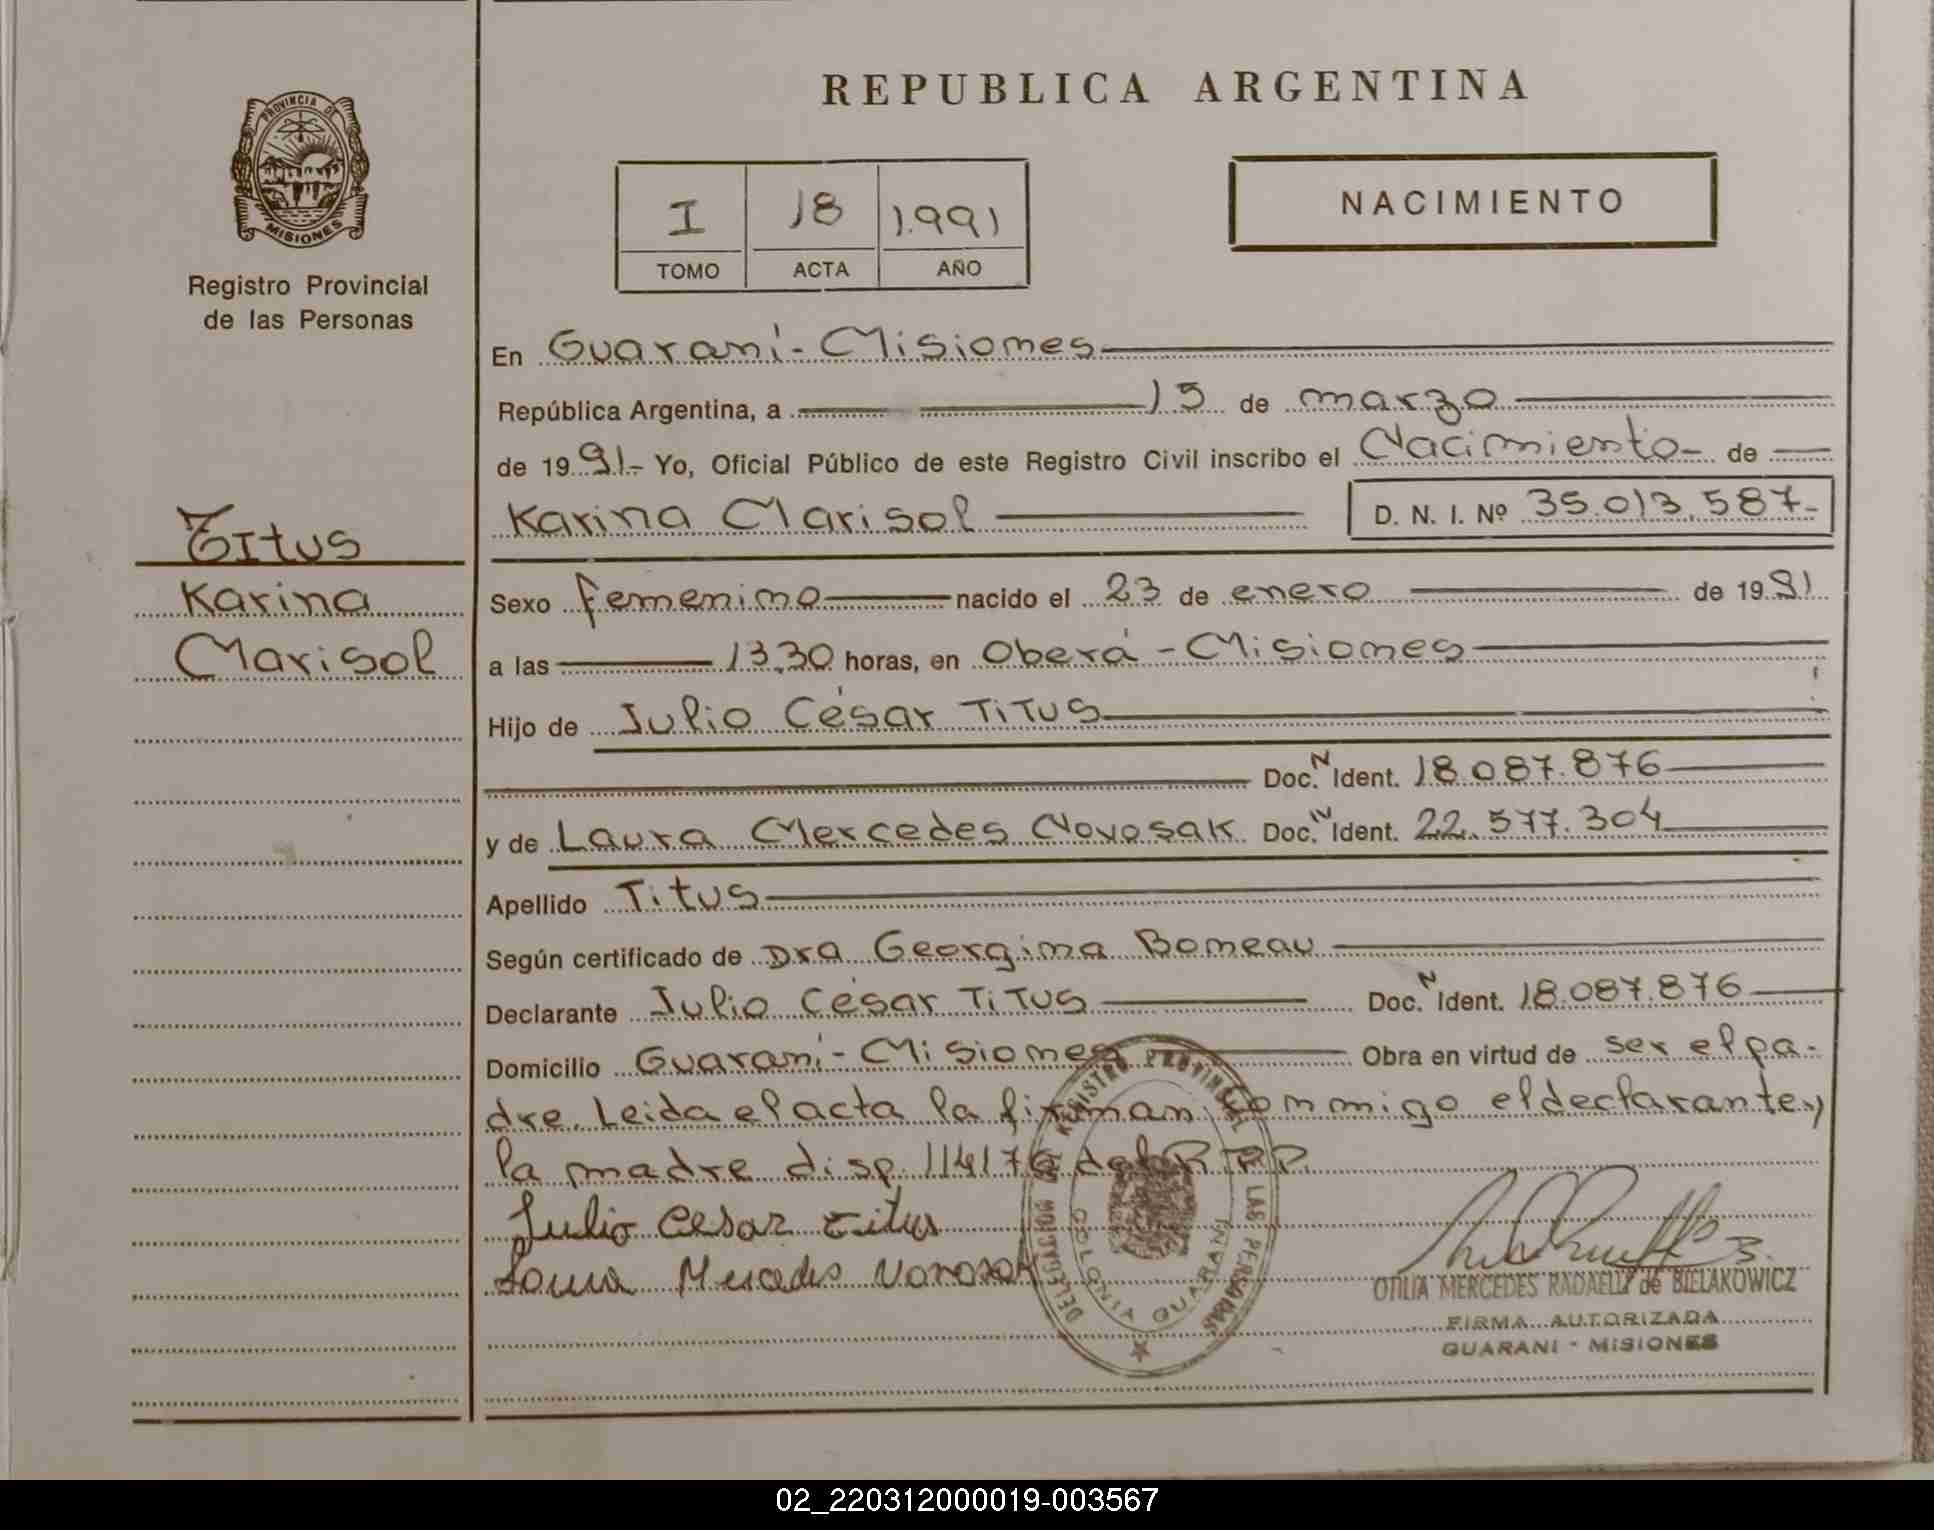 REPUBLICA ARGENTINA
PROVINCIA DE
MISIONES
Registro Provincial
de las Personas
I 18 1.991
TOMO ACTA AÑO
NACIMIENTO
En Guaraní - Misiones
República Argentina, a 15 de marzo
de 1991.- Yo, Oficial Público de este Registro Civil inscribo el Nacimiento- de
Karina Marisol D. N. I. Nº 35.013.587-
Titus
Karina
Marisol
Sexo femenino nacido el 23 de enero de 1991
a las 13,30 horas, en Oberá - Misiones
Hijo de Julio César Titus
Doc. N Ident. 18.087.876
y de Laura Mercedes Novosak Doc. N Ident. 22.577.304
Apellido Titus
Según certificado de Dra Georgina Boneau
Declarante Julio César Titus Doc. N Ident. 18.087.876
Domicilio Guaraní - Misiones Obra en virtud de ser el pa-
dre. Leida el acta la firman conmigo el declarante y
la madre disp. 114176 del R P P.
Julio Cesar Titus
Laura Mercedes Novosak
DELEGACION DEL REGISTRO PROVINCIAL DE LAS PERSONAS
COLONIA GUARANI
OTILIA MERCEDES RADAELLI de BIELAKOWICZ
FIRMA AUTORIZADA
GUARANI - MISIONES
02_220312000019-003567